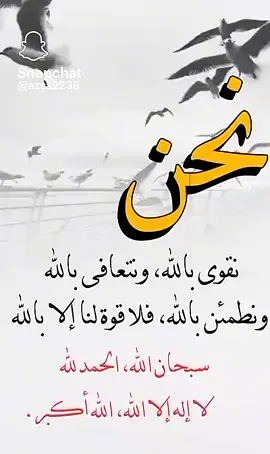 Snapchat
@azsa2238
نحن
نقوى بالله، ونتعافى بالله
ونطمئن بالله، فلا قوة لنا إلا بالله
سبحان الله، الحمد لله
لا إله إلا الله، الله أكبر.